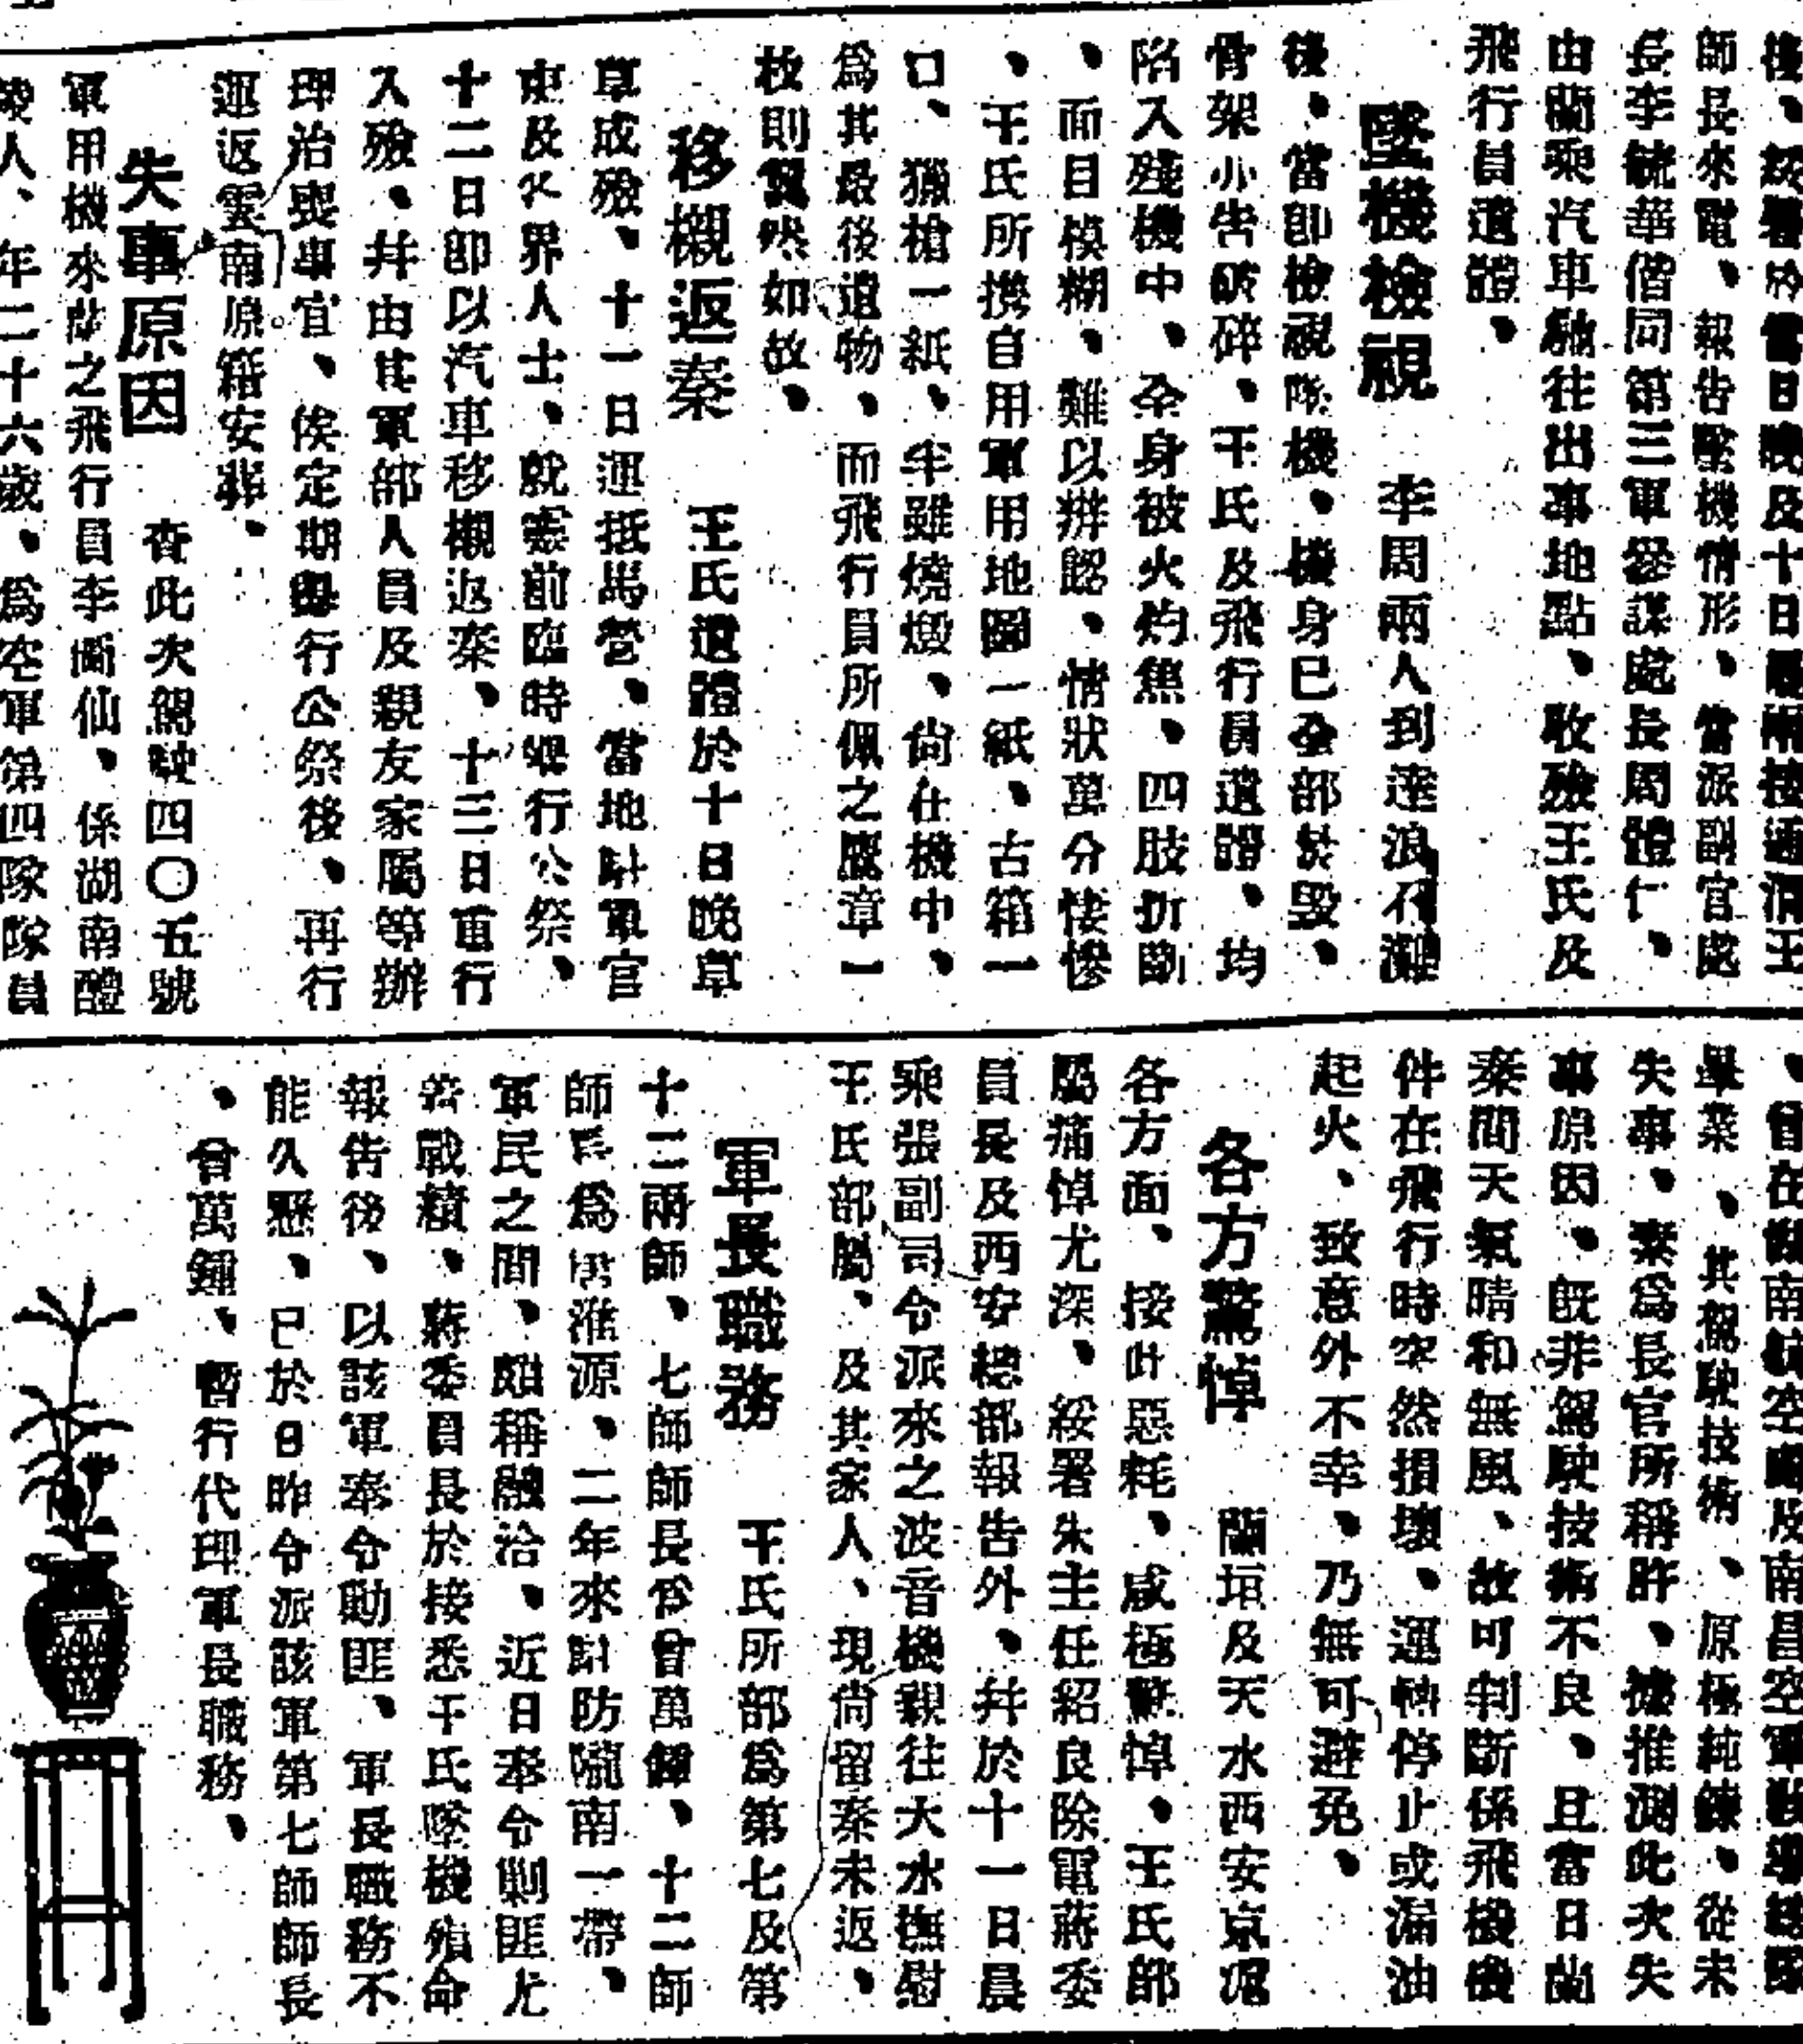 後、綏署於當日晚及十日晨兩接通渭王
師長來電、報告墜機情形、當派副官處
長李毓華偕同第三軍參謀處長周體仁、
由蘭乘汽車馳往出事地點、收殮王氏及
飛行員遺體、
墜機檢視　李周兩人到達浪不灘
後、當卽檢視墜機、機身已全部焚毀、
骨架亦告破碎、王氏及飛行員遺體、均
陷入殘機中、全身被火灼焦、四肢折斷
、面目模糊、難以辨認、情狀萬分悽慘
、王氏所携自用軍用地圖一紙、古箱一
口、獵槍一紙、半雖燒燬、尙在機中、
爲其最後遺物、而飛行員所佩之鷹章一
枚則燦然如故、
移櫬返秦　王氏遺體於十日晚草
草成殮、十一日運抵馬營、當地駐軍官
吏及各界人士、就靈前臨時舉行公祭、
十二日卽以汽車移櫬返秦、十三日重行
入殮、幷由其軍部人員及親友家屬等辦
理治喪事宜、俟定期舉行公祭後、再行
運返雲南原籍安葬、
失事原因　查此次駕駛四〇五號
軍用機來隴之飛行員李嶽仙、係湖南醴
陵人、年二十六歲、爲空軍第四隊隊員
、曾在湖南航空處及南昌空軍教導總隊
畢業、其駕駛技術、原極純鍊、從未
失事、素爲長官所稱許、據推測此次失
事原因、旣非駕駛技術不良、且當日蘭
秦間天氣晴和無風、故可判斷係飛機機
件在飛行時突然損壞、運轉停止或漏油
起火、致意外不幸、乃無可避免、
各方驚悼　蘭垣及天水西安京滬
各方面、接此惡耗、咸極驚悼、王氏部
屬痛悼尤深、綏署朱主任紹良除電蔣委
員長及西安總部報告外、幷於十一日晨
乘張副司令派來之波音機親往天水撫慰
王氏部屬、及其家人、現尙留秦未返、
軍長職務　王氏所部爲第七及第
十二兩師、七師師長爲曾萬鍾、十二師
師長爲唐淮源、二年來駐防隴南一帶、
軍民之間、頗稱融洽、近日奉令剿匪尤
著戰績、蔣委員長於接悉王氏墜機殞命
報告後、以該軍奉令勦匪、軍長職務不
能久懸、已於日昨令派該軍第七師師長
、曾萬鍾、暫行代理軍長職務、